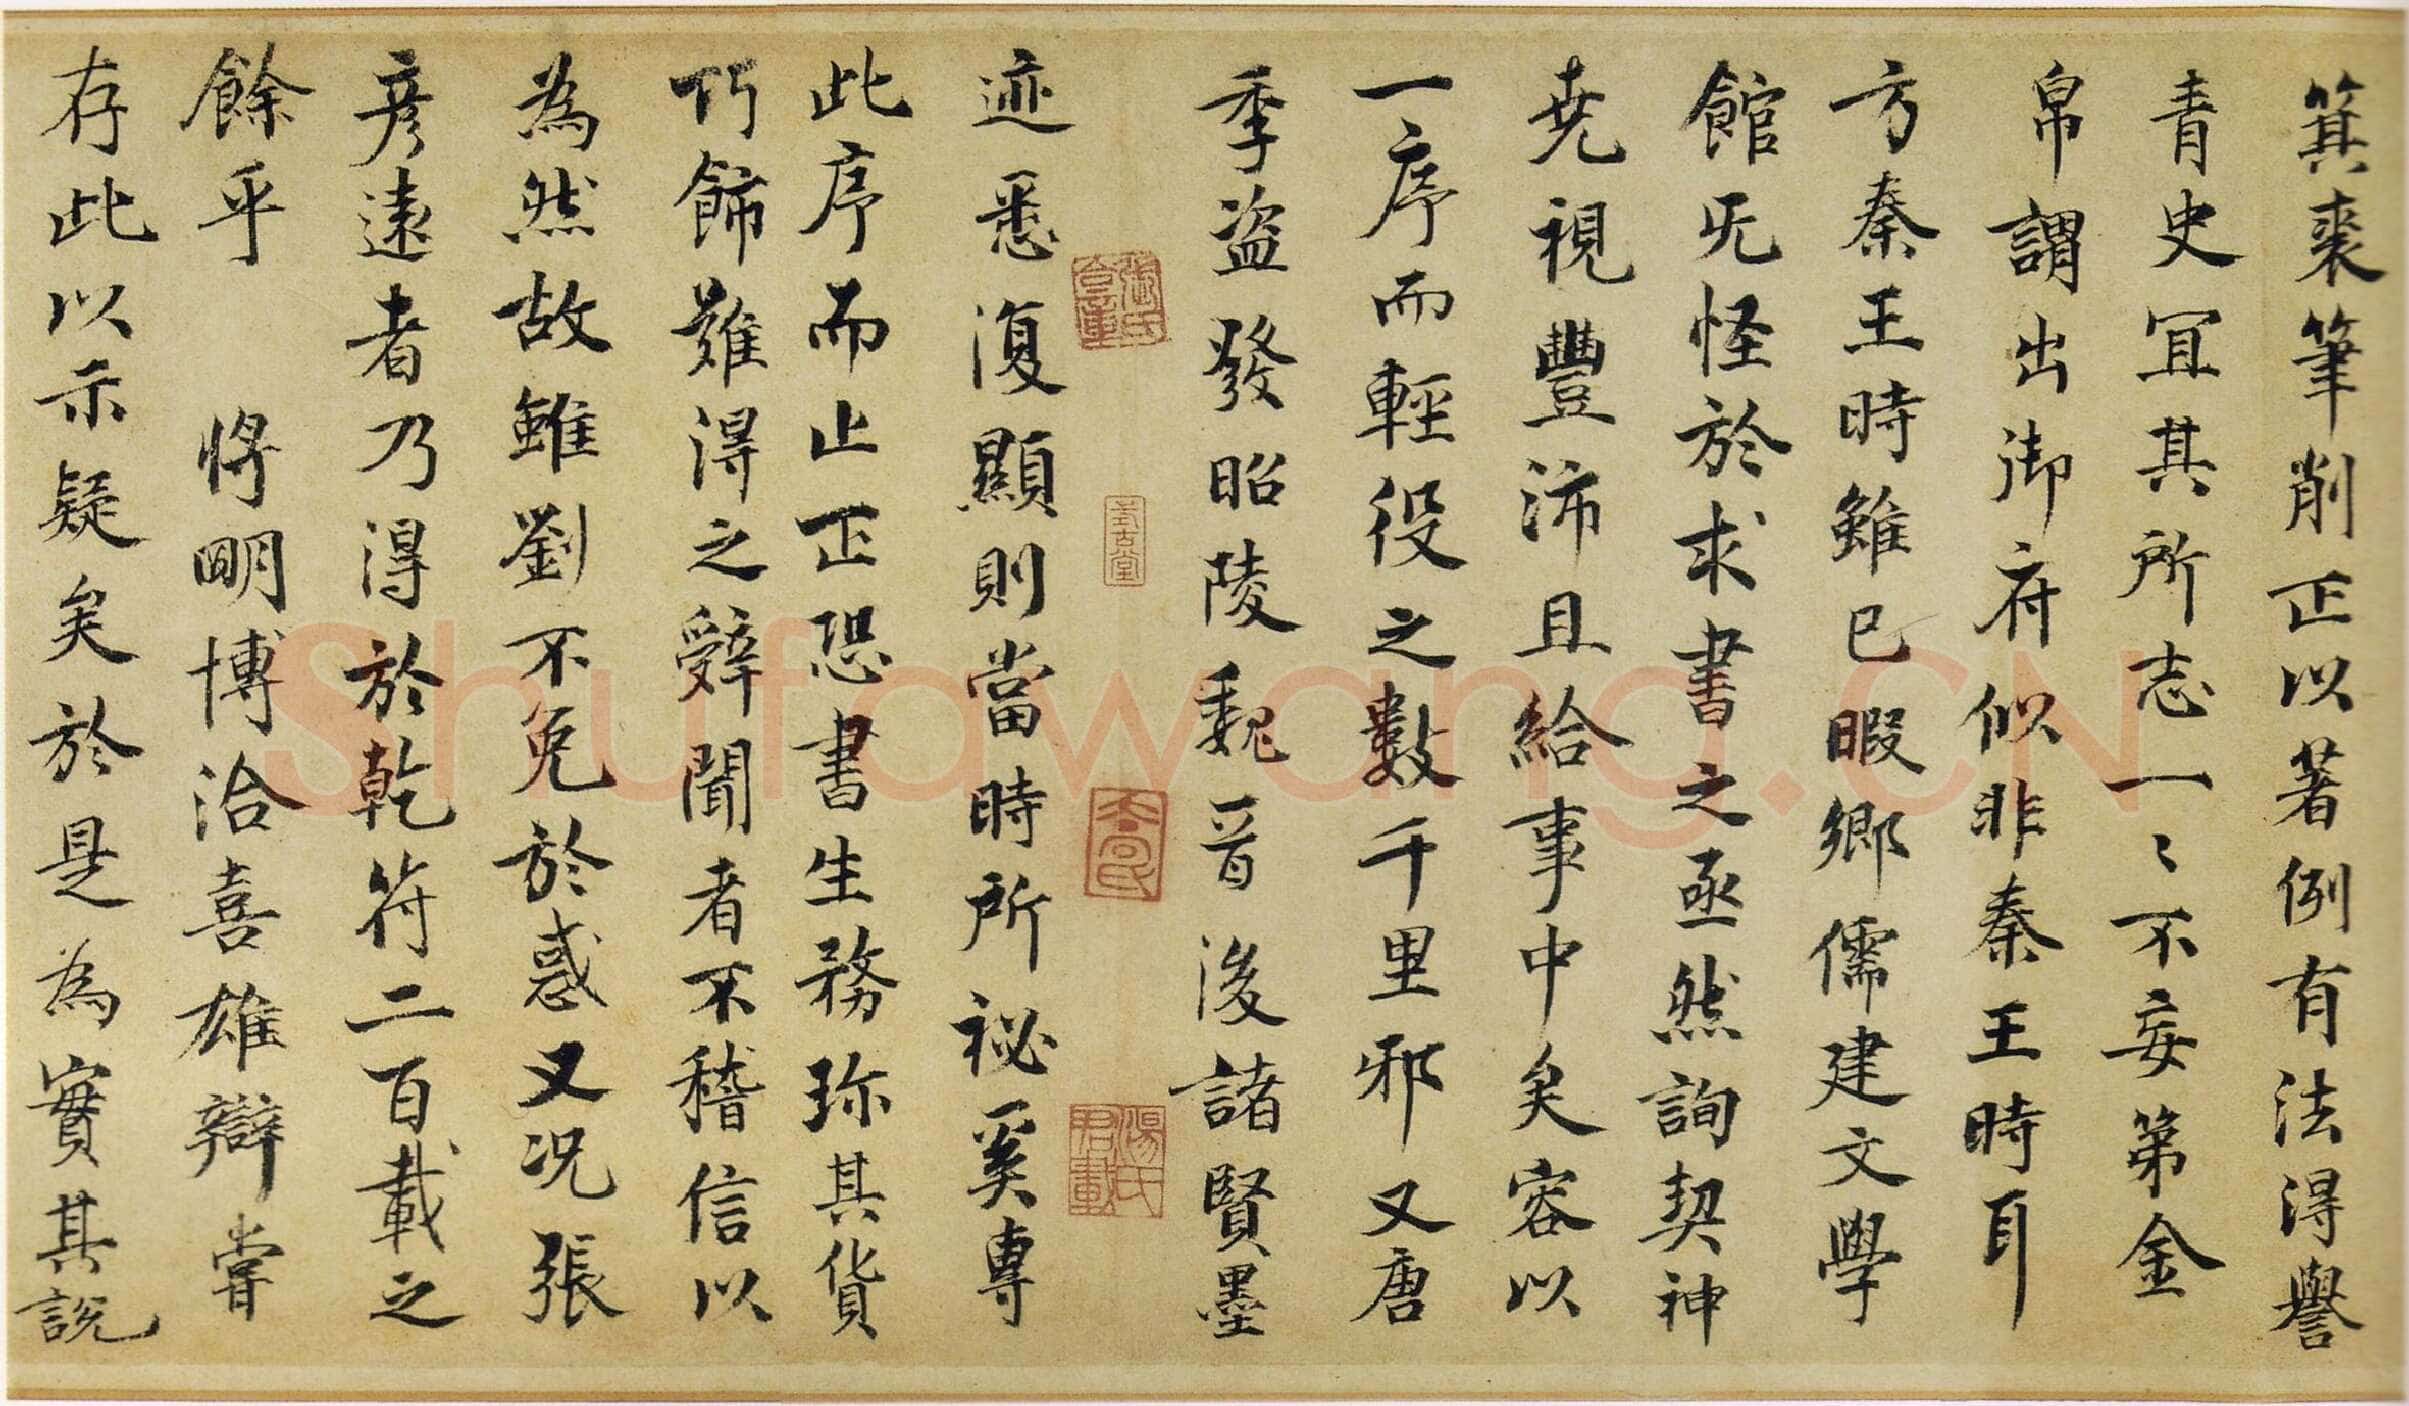 箕裘筆削正以著例有法得譽
青史冝其所志一〻不妄第金
帛謂出御府似非秦王時耳
方秦王時雖已暇鄉儒建文學
館旡怪於求書之亟然詢契神
尭視豐沛且給事中矣容以
一序而輕役之數千里邪又唐
季盗發昭陵魏晉後諸賢墨
迹悉復顯則當時所祕奚専
此序而止正恐書生務珎其貨
巧飾難得之辤聞者不稽信以
為然故雖劉不免於惑又况張
彦遠者乃得於乾符二百載之
餘乎 将明博洽喜雄辯嘗
存此以示疑矣於是為實其説
張氏
式古堂
Shufawang.CN